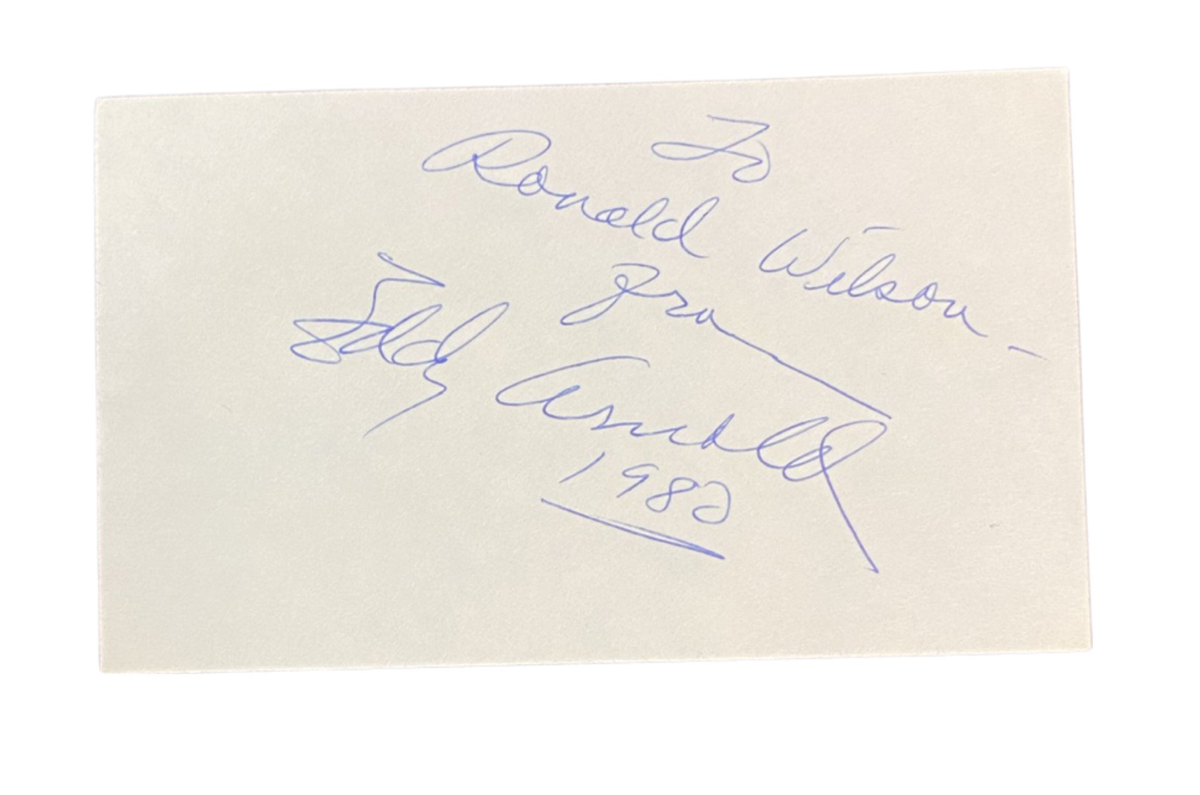 To
Ronald Wilson -
From
Eddy Arnold
1982